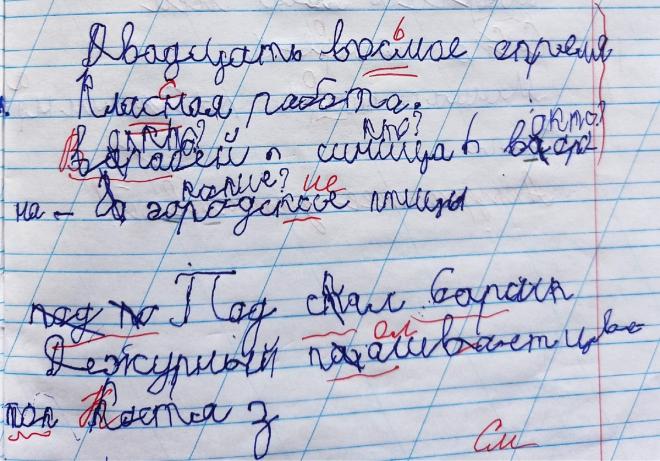 ь
Двадцать восмое апреля
с
Класная работа.
о кто? кто? о кто?
Варабей, синица, варо
какие? ие
на - городское птицы
под по Под скал баран
ол
Дежурный паашивает цве
топ Костя з
См